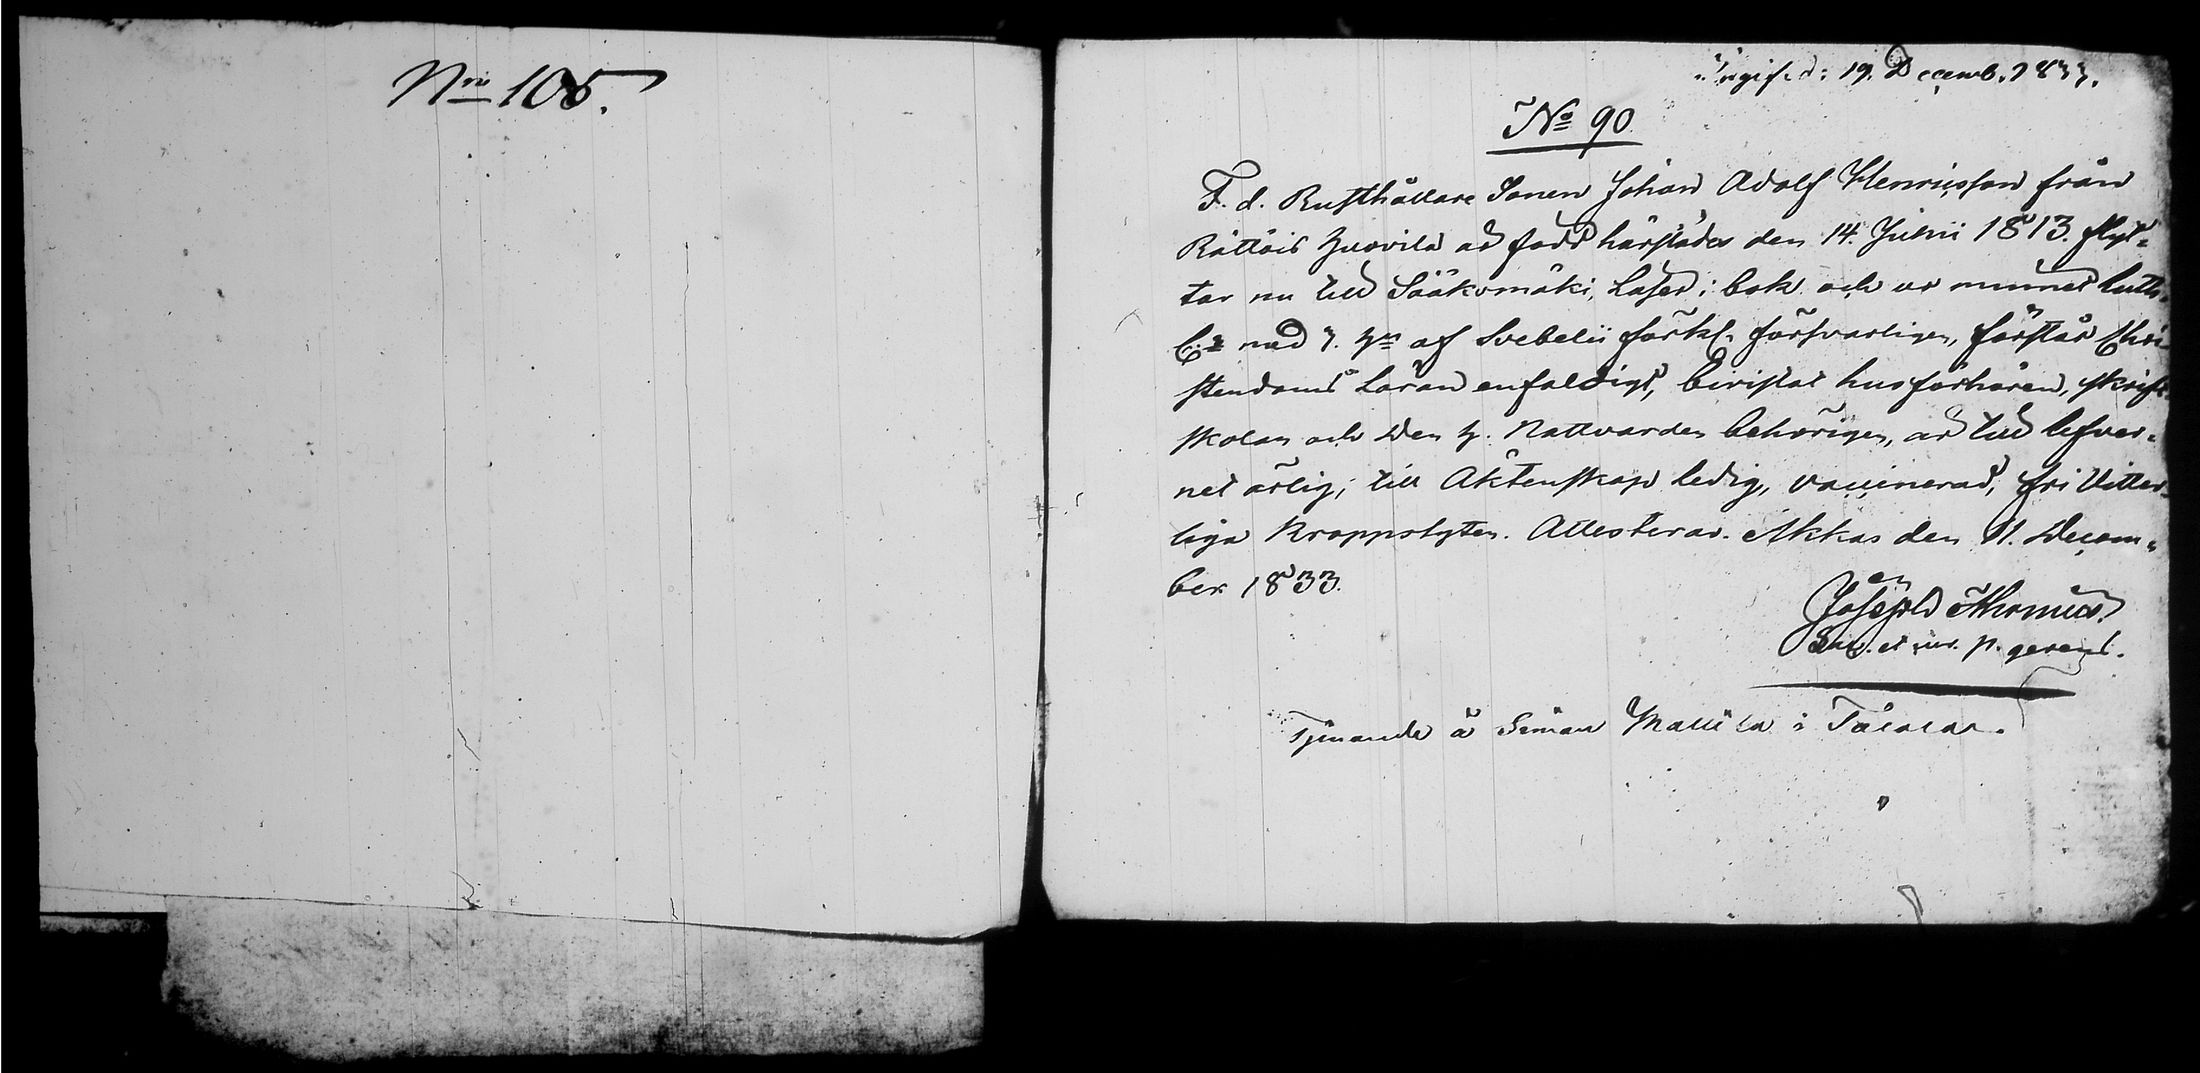 Nro 105.
Ingif. d: 19. Decemb. 1833.
No 90
F. d. Rusthållare Sonen Johan Adolf Henricsson från
Rättöis är född härstädes den 14. Junii 1813. flyt-
tar nu till Sääksmäki, läser i bok och ur minnet Luth.
C:s med af Svebelii förkl. försvarligen, förstår Chri-
stendoms Läran enfaldigt, bevistat husförhören, skrift-
skolan och den H. Nattvarden behörigen, är till lefver-
net ärlig; till Äktenskap ledig, vaccinerad, fri vitter-
liga Kroppslyten. Attesterar. Akkas den 11. Decem-
ber 1833.
Joseph
Sac. et p. gerens.
Tjenande å Simon Mattila i